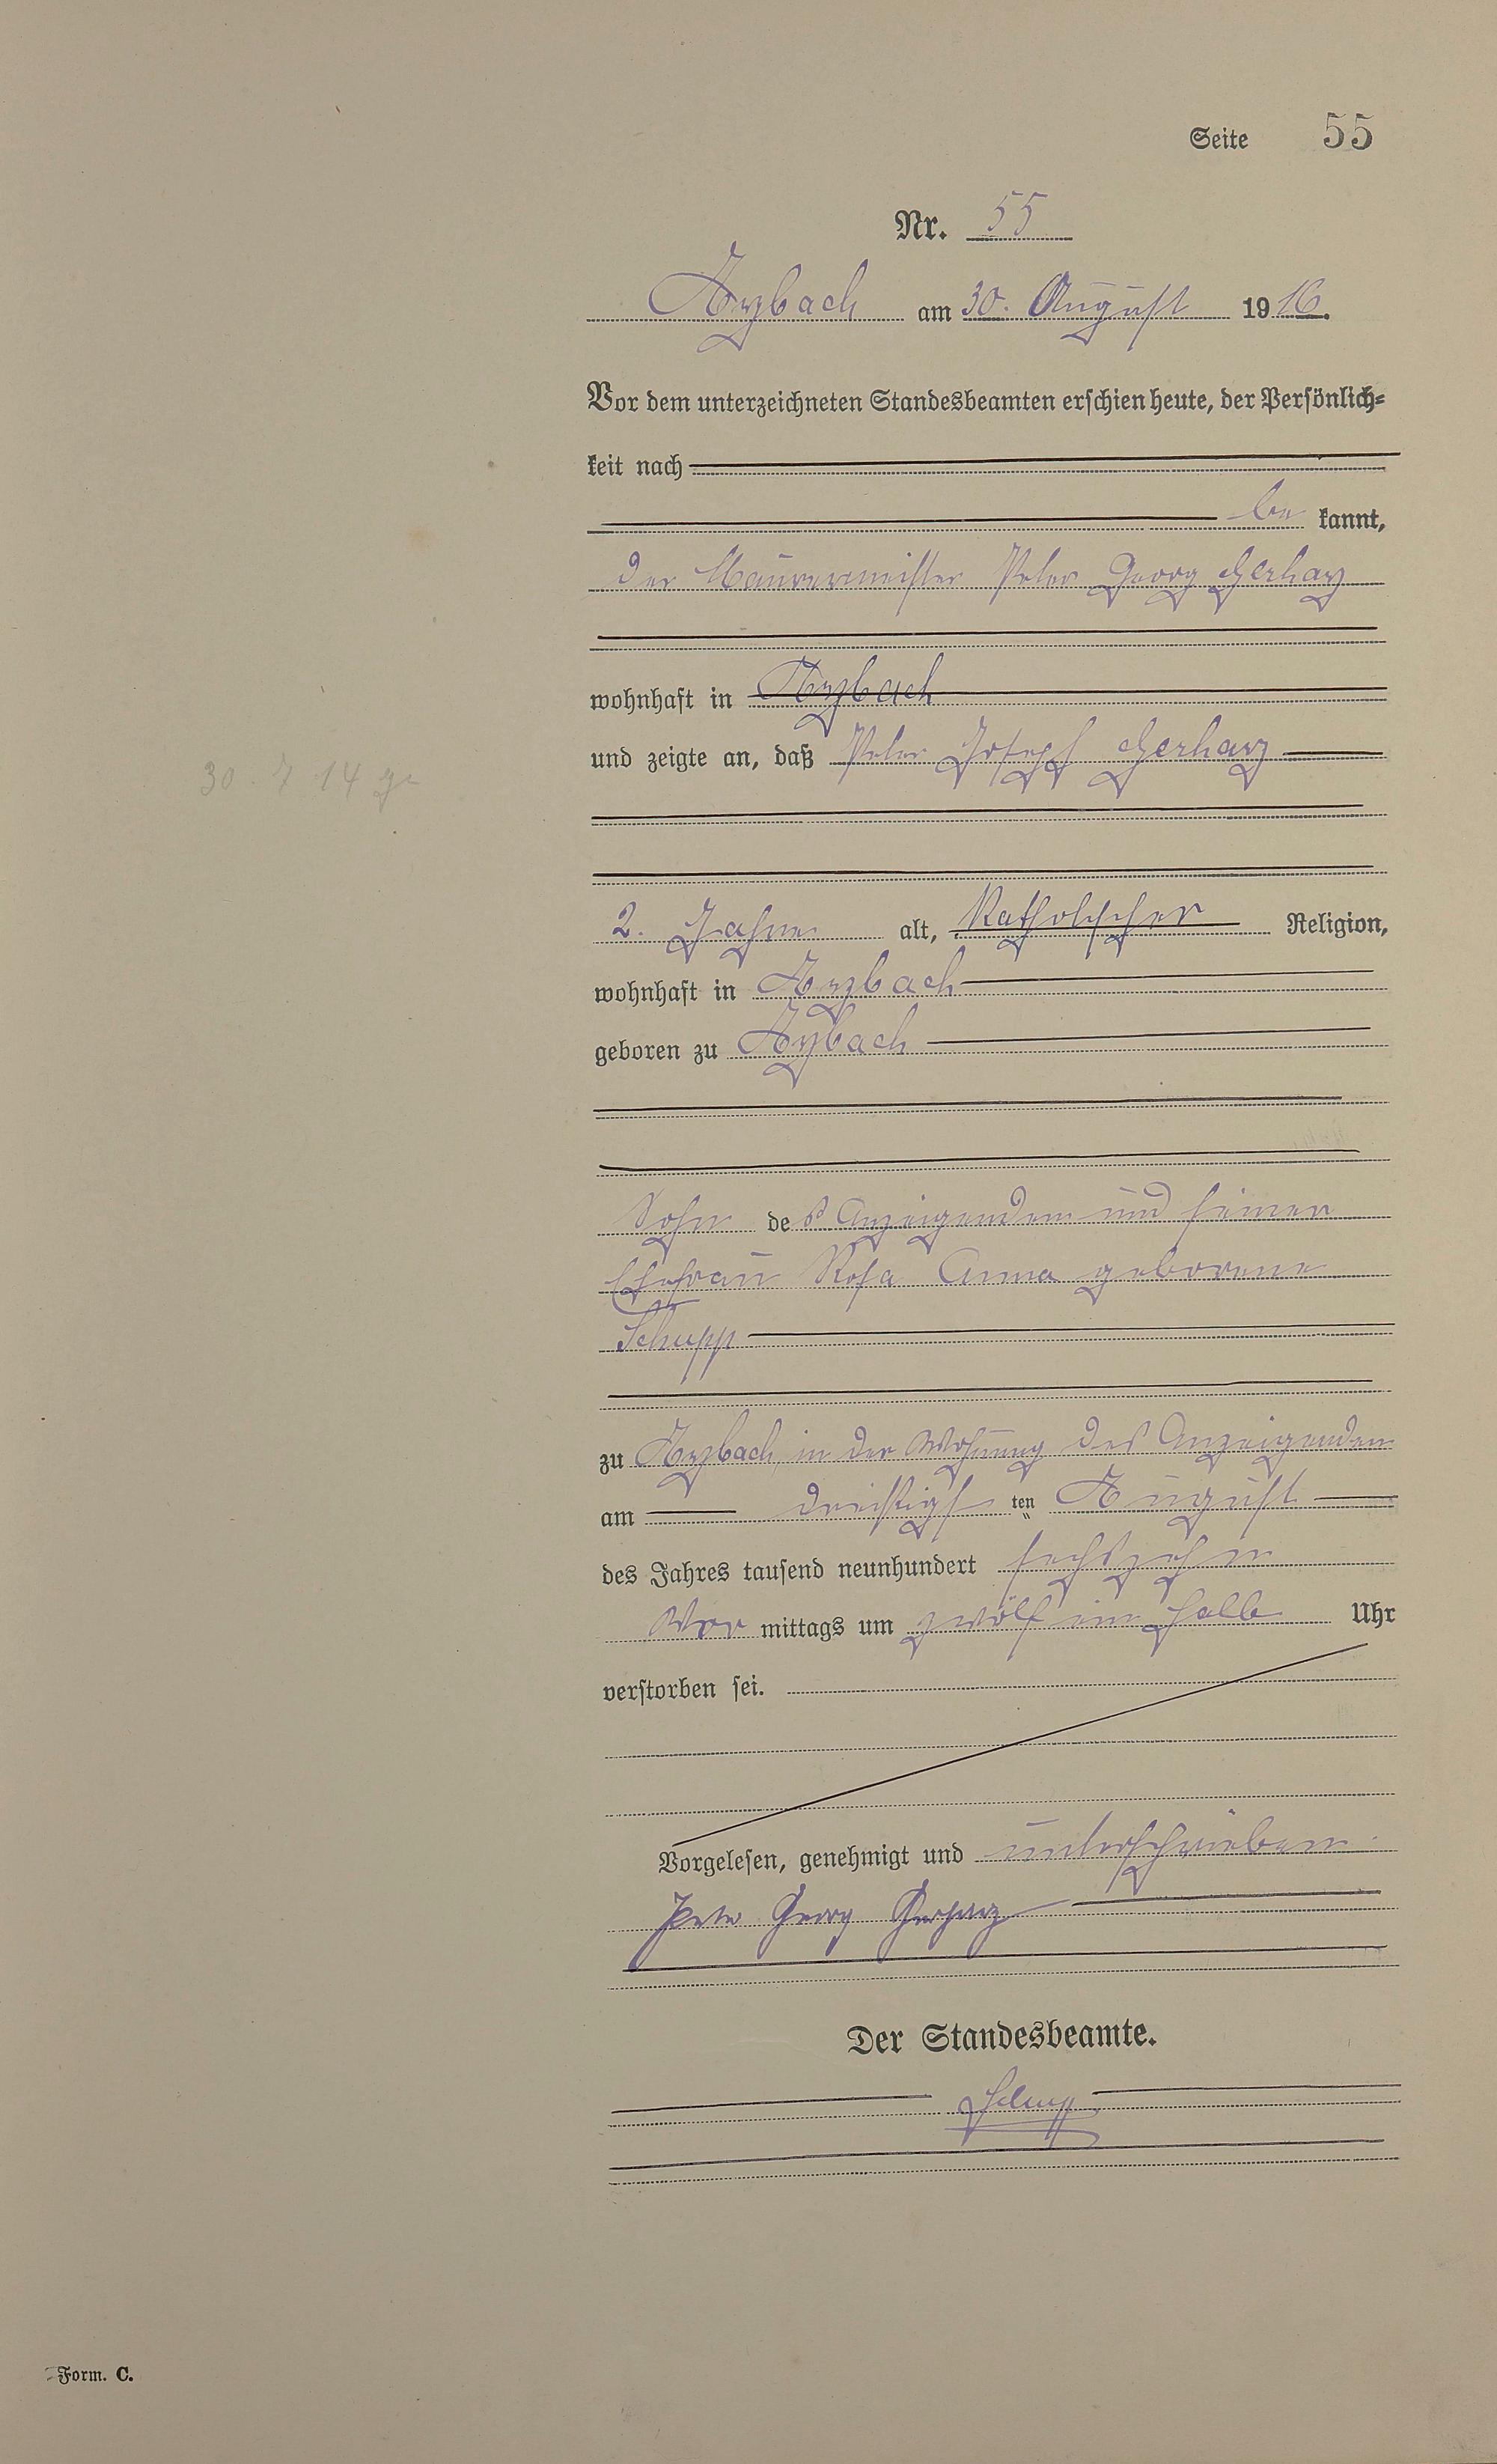 Seite 55
Nr. 55
Arzbach am 30. August 1916.
Vor dem unterzeichneten Standesbeamten erschien heute, der Persönlich=
keit nach
be kannt,
der Maurermeister Peter Georg Gerharz
wohnhaft in Arzbach
und zeigte an, daß Peter Joseph Gerharz
30. 7 14
2. Jahre alt, Katholischer Religion,
wohnhaft in Arzbach
geboren zu Arzbach
Sohn des Anzeigenden und seiner
Ehefrau Rosa Anna geborene
Schupp
zu Arzbach, in der Wohnung des Anzeigenden
am dreißigsten August
des Jahres tausend neunhundert sechszehn
Vor mittags um zwölf ein halb Uhr
verstorben sei.
Vorgelesen, genehmigt und unterschrieben.
Peter Georg Gerharz
Der Standesbeamte.
Schupp
Form. C.